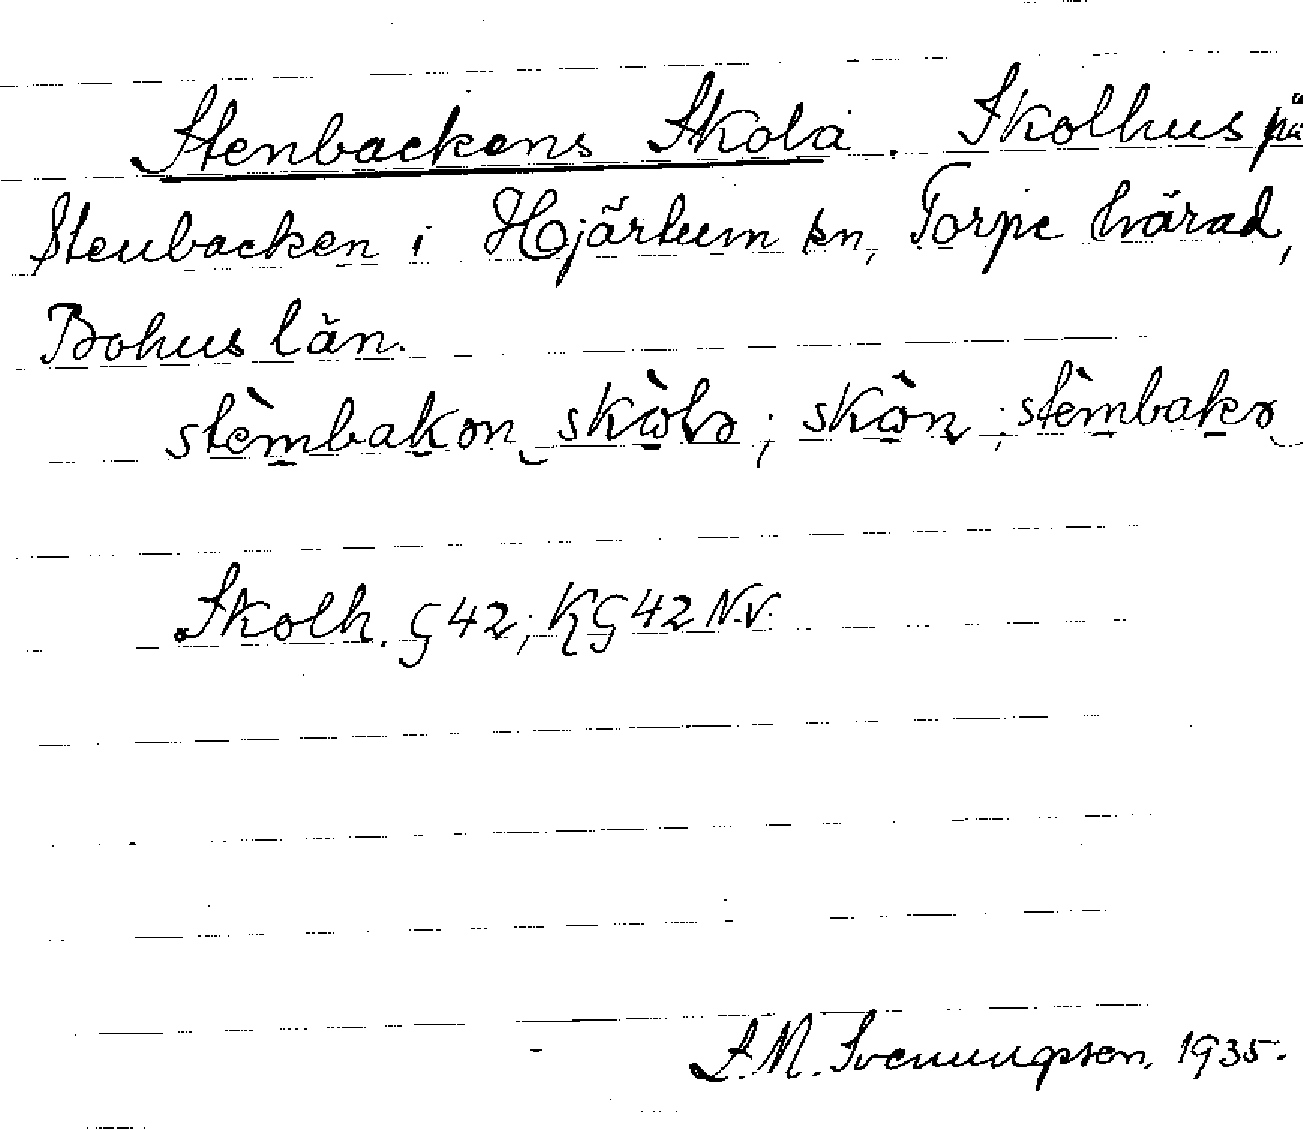 Stenbackens Skola. Skolhus på
Stenbacken i Hjärtum sn, Torpe härad,
Bohus län.
stèmbakən skòlə; skòn; stèmbakə
Skolh. G 42; KG 42 N.V.
S.M. Svenungsson. 1935.